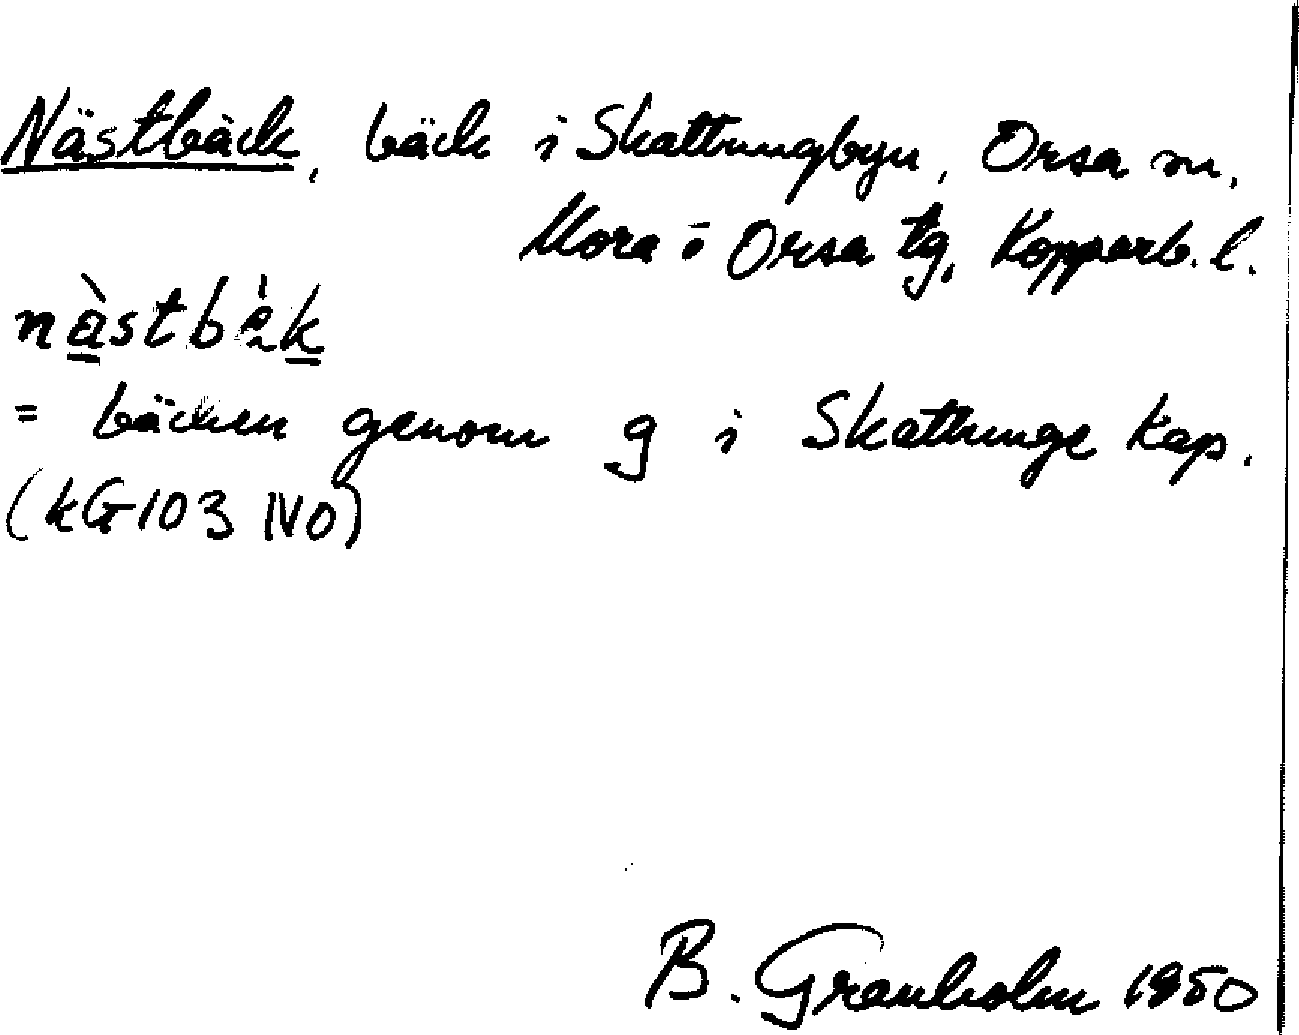 Nästbäck, bäck i Skattungbyn, Orsa sn,
Mora o Orsa tg, Kopparb. l.
nàstbèk
= bäcken genom g i Skattunge kap.
(kG 103 NO)
B. Granholm 1950